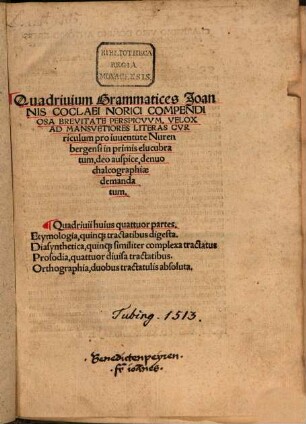 BIBLIOTHECA
REGIA
MONACENSIS.
Quadriuium Grammatices Joan
NIS COCLAEI NORICI COMPENDI
OSA BREVITATE PERSPICVVM, VELOX
AD MANSVETIORES LITERAS CVR
riculum pro iuuentute Nuren
bergensi in primis elucubra
tum, deo auspice, denuo
chalcographiæ
demanda
tum.
Quadriuii huius quattuor partes.
Etymologia, quinqȝ tractatibus digesta.
Diasynthetica, quinqȝ similiter complexa tractatus
Prosodia, quattuor diuisa tractatibus.
Orthographia, duobus tractatulis absoluta.
Tubing. 1513.
Benedictenpeyren
fr ioannes